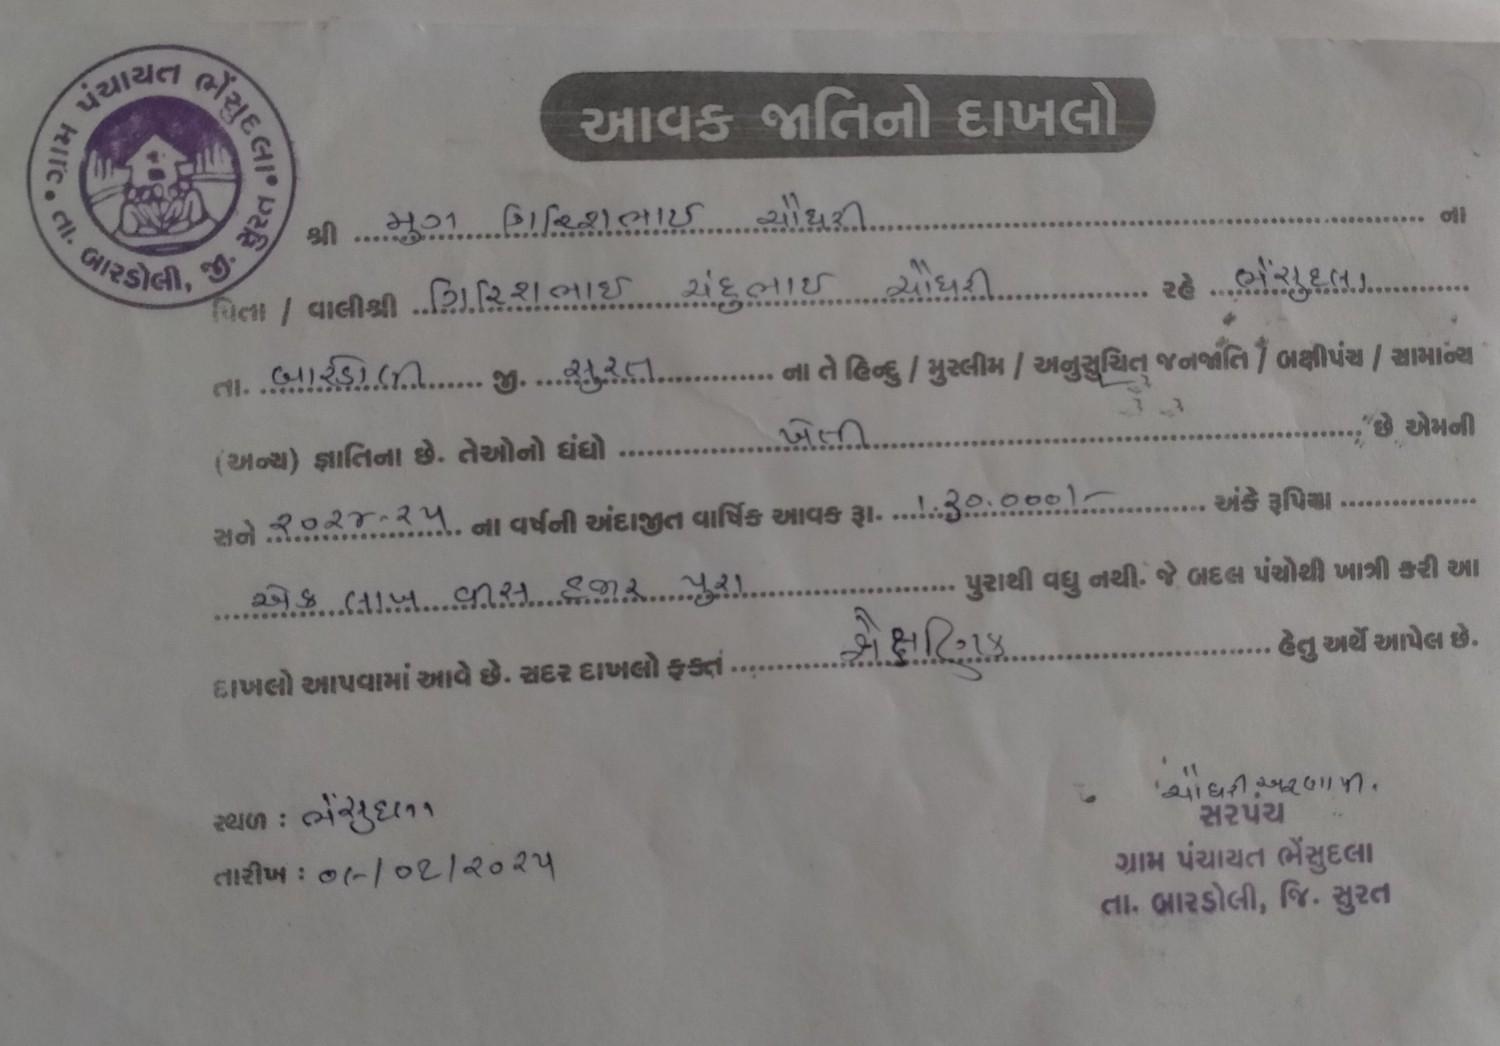 ગ્રામ પંચાયત ભેંસુદલા
તા. બારડોલી, જી. સુરત
આવક જાતિનો દાખલો
શ્રી ગિરિશભાઈ ચૌધરી ના
પિતા / વાલીશ્રી ગિરિશભાઈ ચંદુભાઈ ચૌધરી રહે ભેંસુદલા
તા. બારડોલી જી. સુરત ના તે હિન્દુ / મુસ્લીમ / અનુસુચિત જનજાતિ / બક્ષીપંચ / સામાન્ય
(અન્ય) જ્ઞાતિના છે. તેઓનો ધંધો ખેતી છે એમની
સને ૨૦૨૪-૨૫ ના વર્ષની અંદાજીત વાર્ષિક આવક રૂા. અંકે રૂપિયા
એક લાખ વીસ હજાર પુરા પુરાથી વધુ નથી. જે બદલ પંચોથી ખાત્રી કરી આ
દાખલો આપવામાં આવે છે. સદર દાખલો ફક્ત શૈક્ષણિક હેતુ અર્થે આપેલ છે.
સ્થળ : ભેંસુદલા
તારીખ :
ચૌધરી
સરપંચ
ગ્રામ પંચાયત ભેંસુદલા
તા. બારડોલી, જિ. સુરત